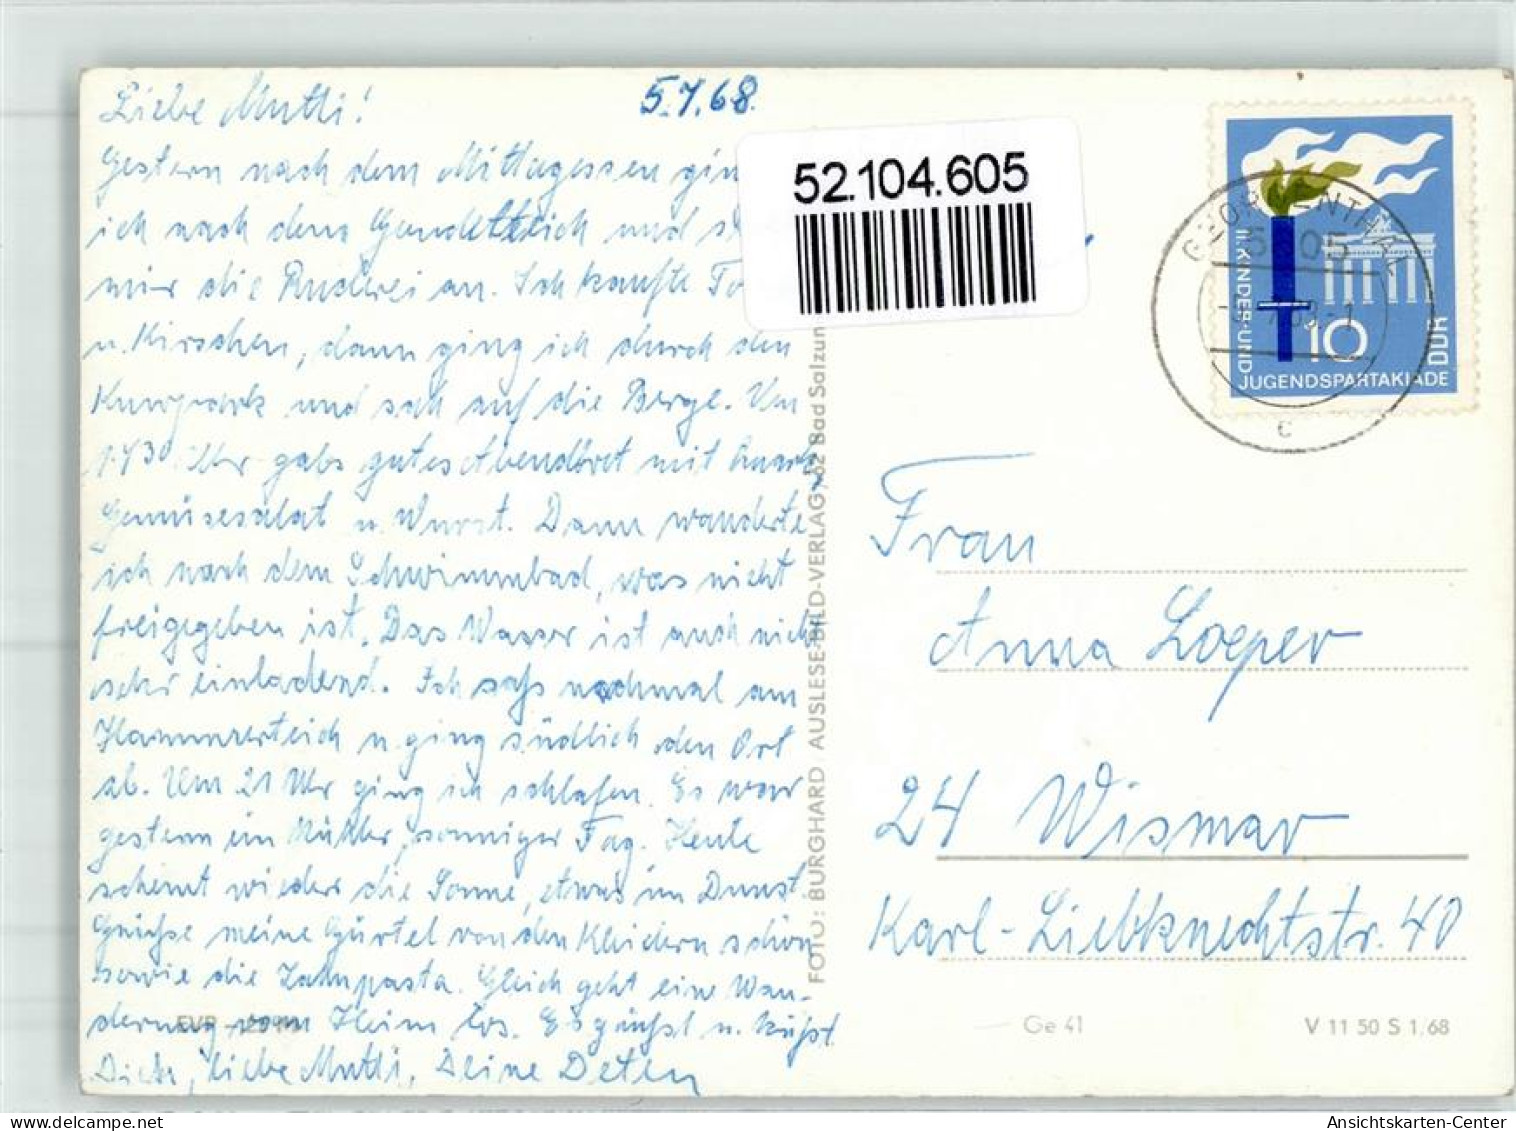 Liebe Mutti!
5.7.68.
Gestern nach dem Mittagessen gin
ich nach dem Gondelteich und s
mir die Ruderei an. Ich kaufte To
u. Kirschen, dann ging ich durch den
Kurpark und sah auf die Berge. Um
1730 Uhr gabs gutes Abendbrot mit Quark,
Gemüsesalat u. Wurst. Dann wanderte
ich nach dem Schwimmbad, was nicht
freigegeben ist. Das Wasser ist auch nicht
sehr einladend. Ich sass nochmal am
Hammerteich u ging südlich den Ort
ab. Um 21 Uhr ging ich schlafen. Es war
gestern ein kühler, sonniger Tag. Heute
scheint wieder die Sonne, etwas im Dunst
meine Gürtel von den Kleidern schön
sowie die Zahnpasta. Gleich geht eine Wan-
derung vom Heim los. Es grüßt u. küßt
Dich, liebe Mutti, Deine
52.104.605
FOTO: BURGHARD AUSLESE-BILD-VERLAG, 62 Bad Salzun
II. KINDER-UND
JUGENDSPARTAKIADE
10
DDR
Frau
Anna Loeper
24 Wismar
Karl-Liebknechtstr. 40
Ge 41
V 11 50 S 1.68
Ansichtskarten-Center